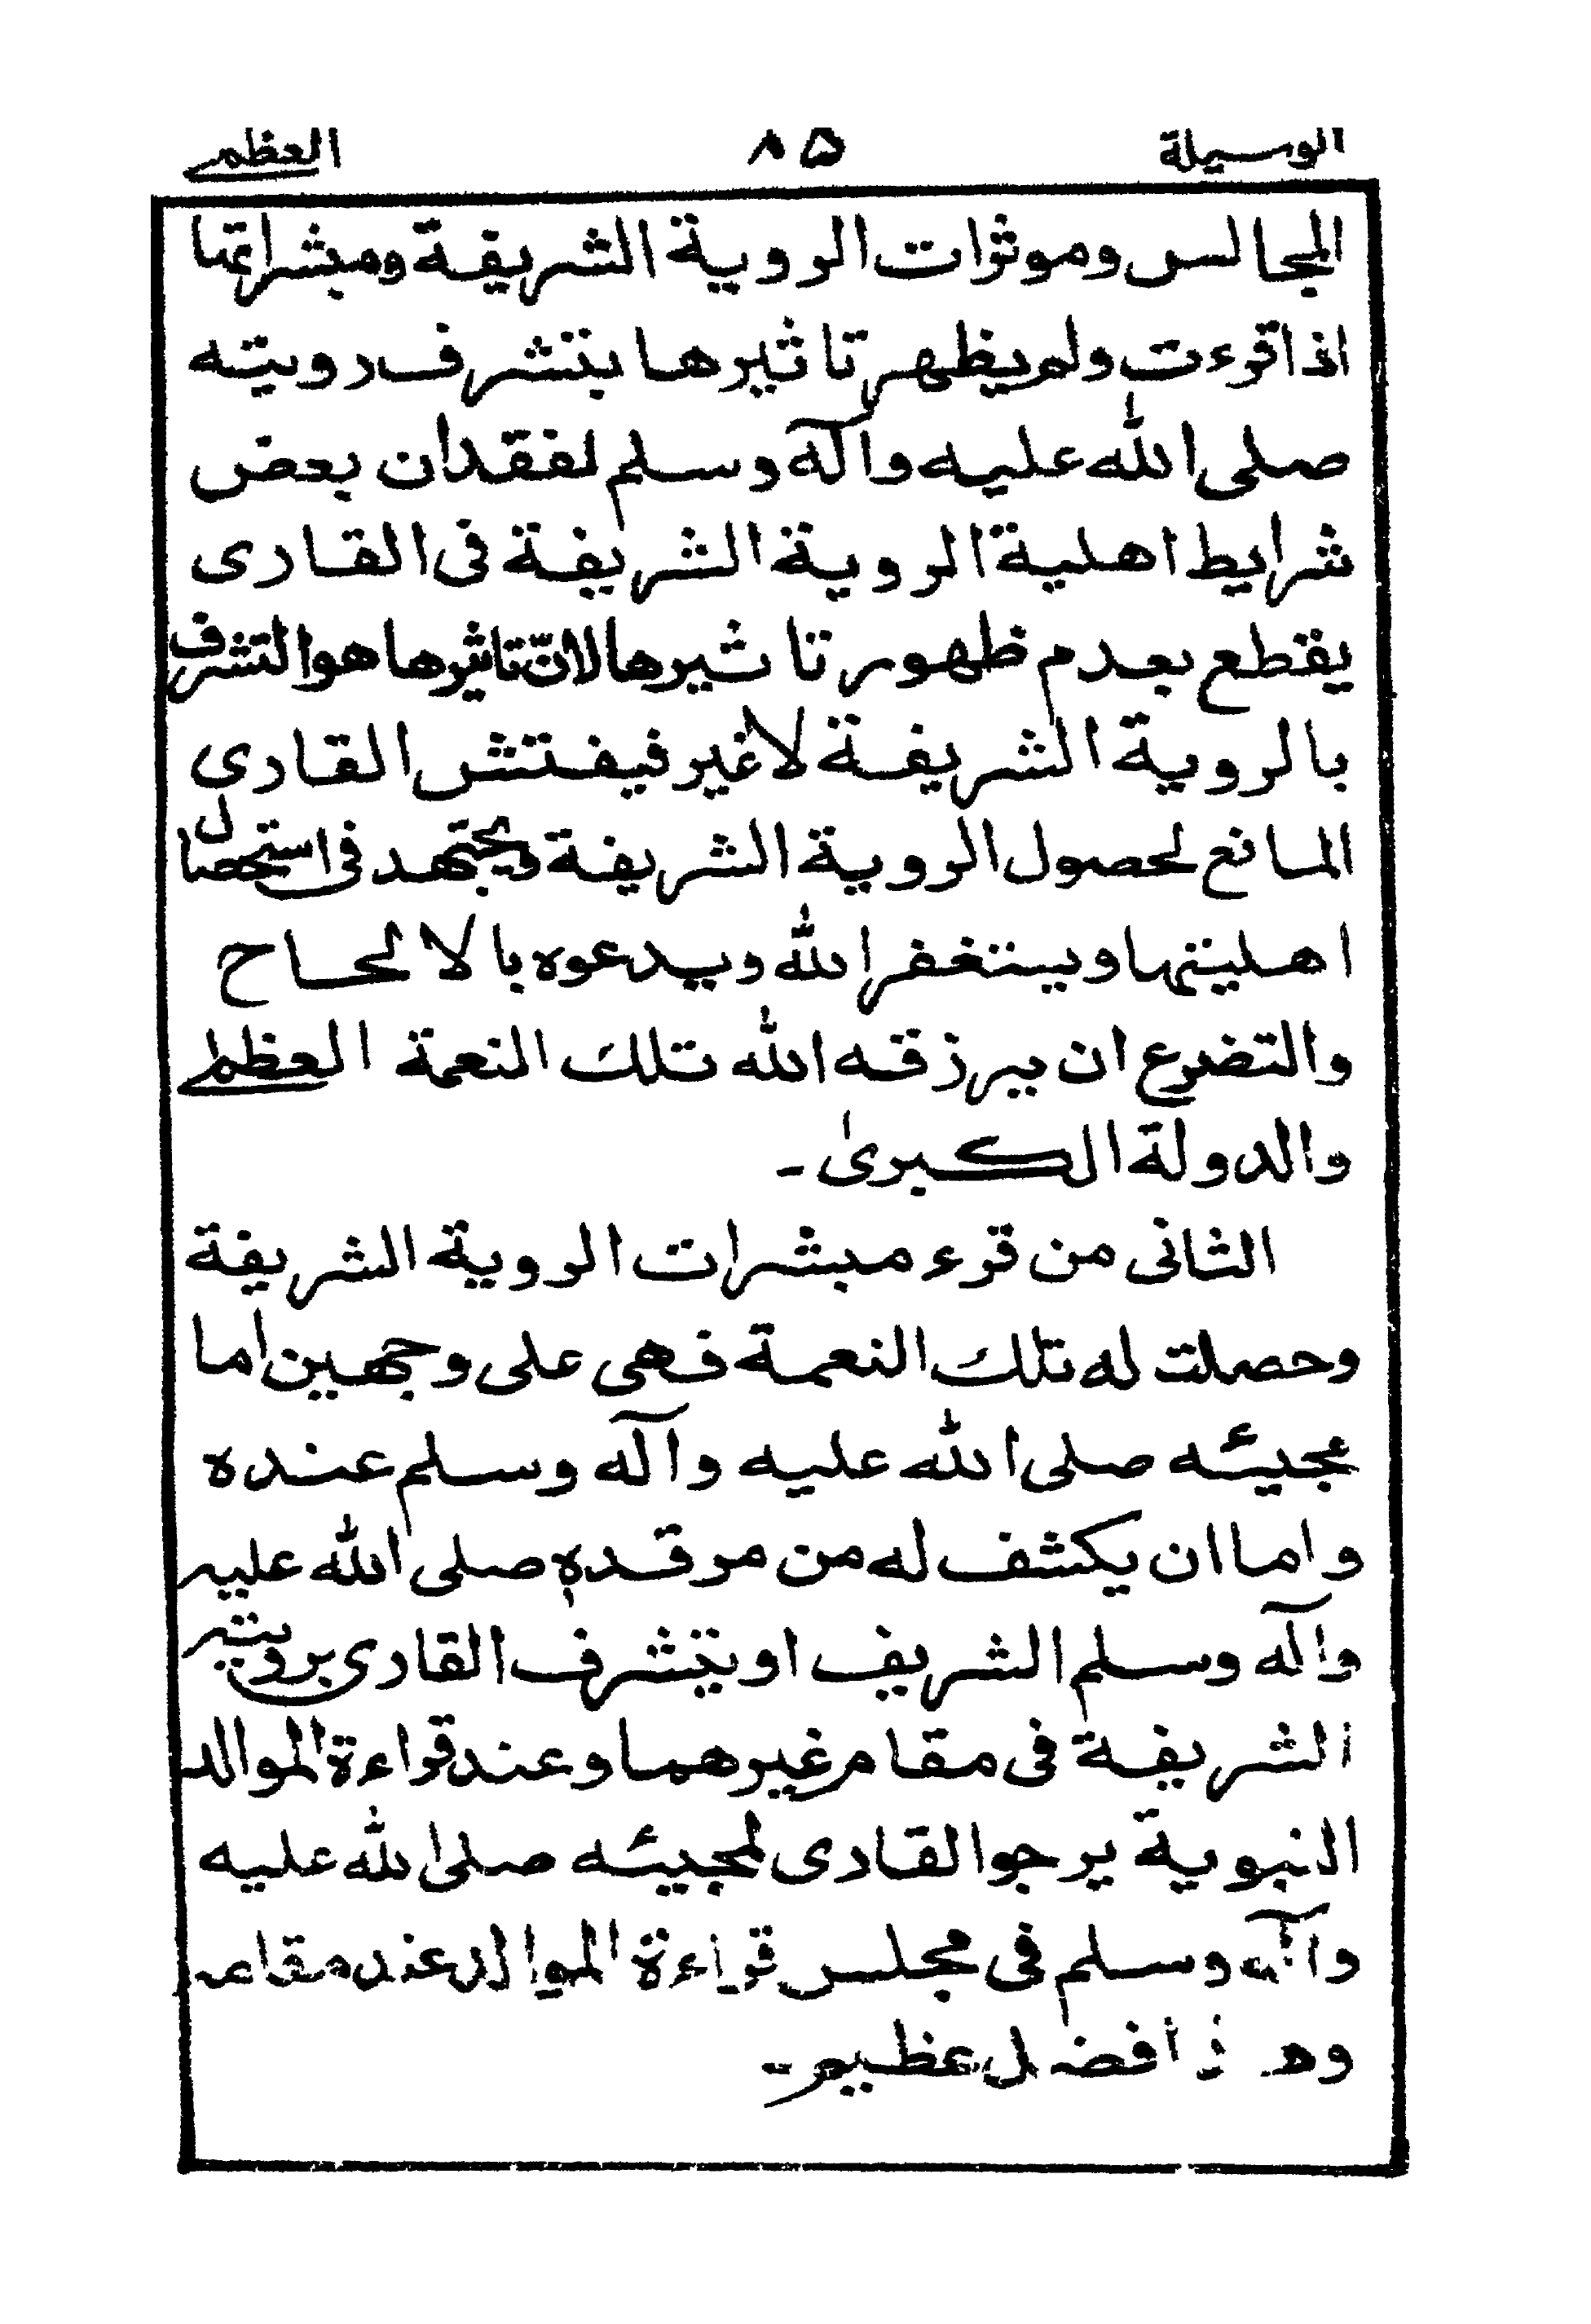 الوسيلة ٨٥ العظمے
المجالس وموثرات الروية الشريفة ومبشراتها
اذا قرءت ولم يظهر تاثيرها بتشرف رويته
صلى الله عليه وآله وسلم لفقدان بعض
شرايط اهلية الروية الشريفة فى القارى
يقطع بعدم ظهور تاثيرها لانّ تاثيرها هو التشرف
بالروية الشريفة لا غير فيفتش القارى
المانع لحصول الروية الشريفة ويجتهد فى استحصال
اهليتها ويستغفر الله ويدعوه بالالحاح
والتضرع ان يرزقه الله تلك النعمة العظمے
والدولة الكبرىٰ -
الثانى من قرء مبشرات الروية الشريفة
وحصلت له تلك النعمة فهى على وجهين اما
مجيئه صلى الله عليه وآله وسلم عنده
واما ان يكشف له من مرقده صلى الله عليه
وآله وسلم الشريف او يتشرف القارى برويته
الشريفة فى مقام غيرهما وعند قراءة الموالد
النبوية يرجو القارى لمجيئه صلى الله عليه
وآله وسلم فى مجلس قراءة الموالد عند مقامه
فضل عظيم -